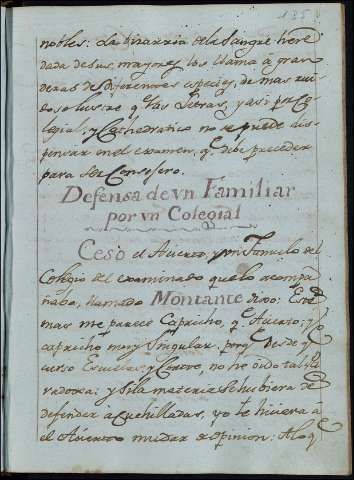 nobles: La bizarria de la Sangre here
dada de sus mayores los llama à gran
dezas de diferentes especies, de mas rui
doso lustre q̃ las Letras, y assi por Co
legial, y Cathedratico no se puede dis
pensar en el examen, q̃ debe preceder
para ser Consejero.
Defensa de vn Familiar
por vn Colegial
Cesó el Acierto, y vn Famulo del
Colegio del examinado que lo acompa
ñaba, llamado Montante dixo: Este
mas me parece Capricho, q̃ Acierto; y
capricho muy Singular, porq̃ desde q̃
curso Escuelas, y Corte, no he oido tal Pa
radoxa; y si la materia se hubiera de
defender a cuchilladas, yo le hiciera à
el Acierto mudar de opinion: A lo q̃